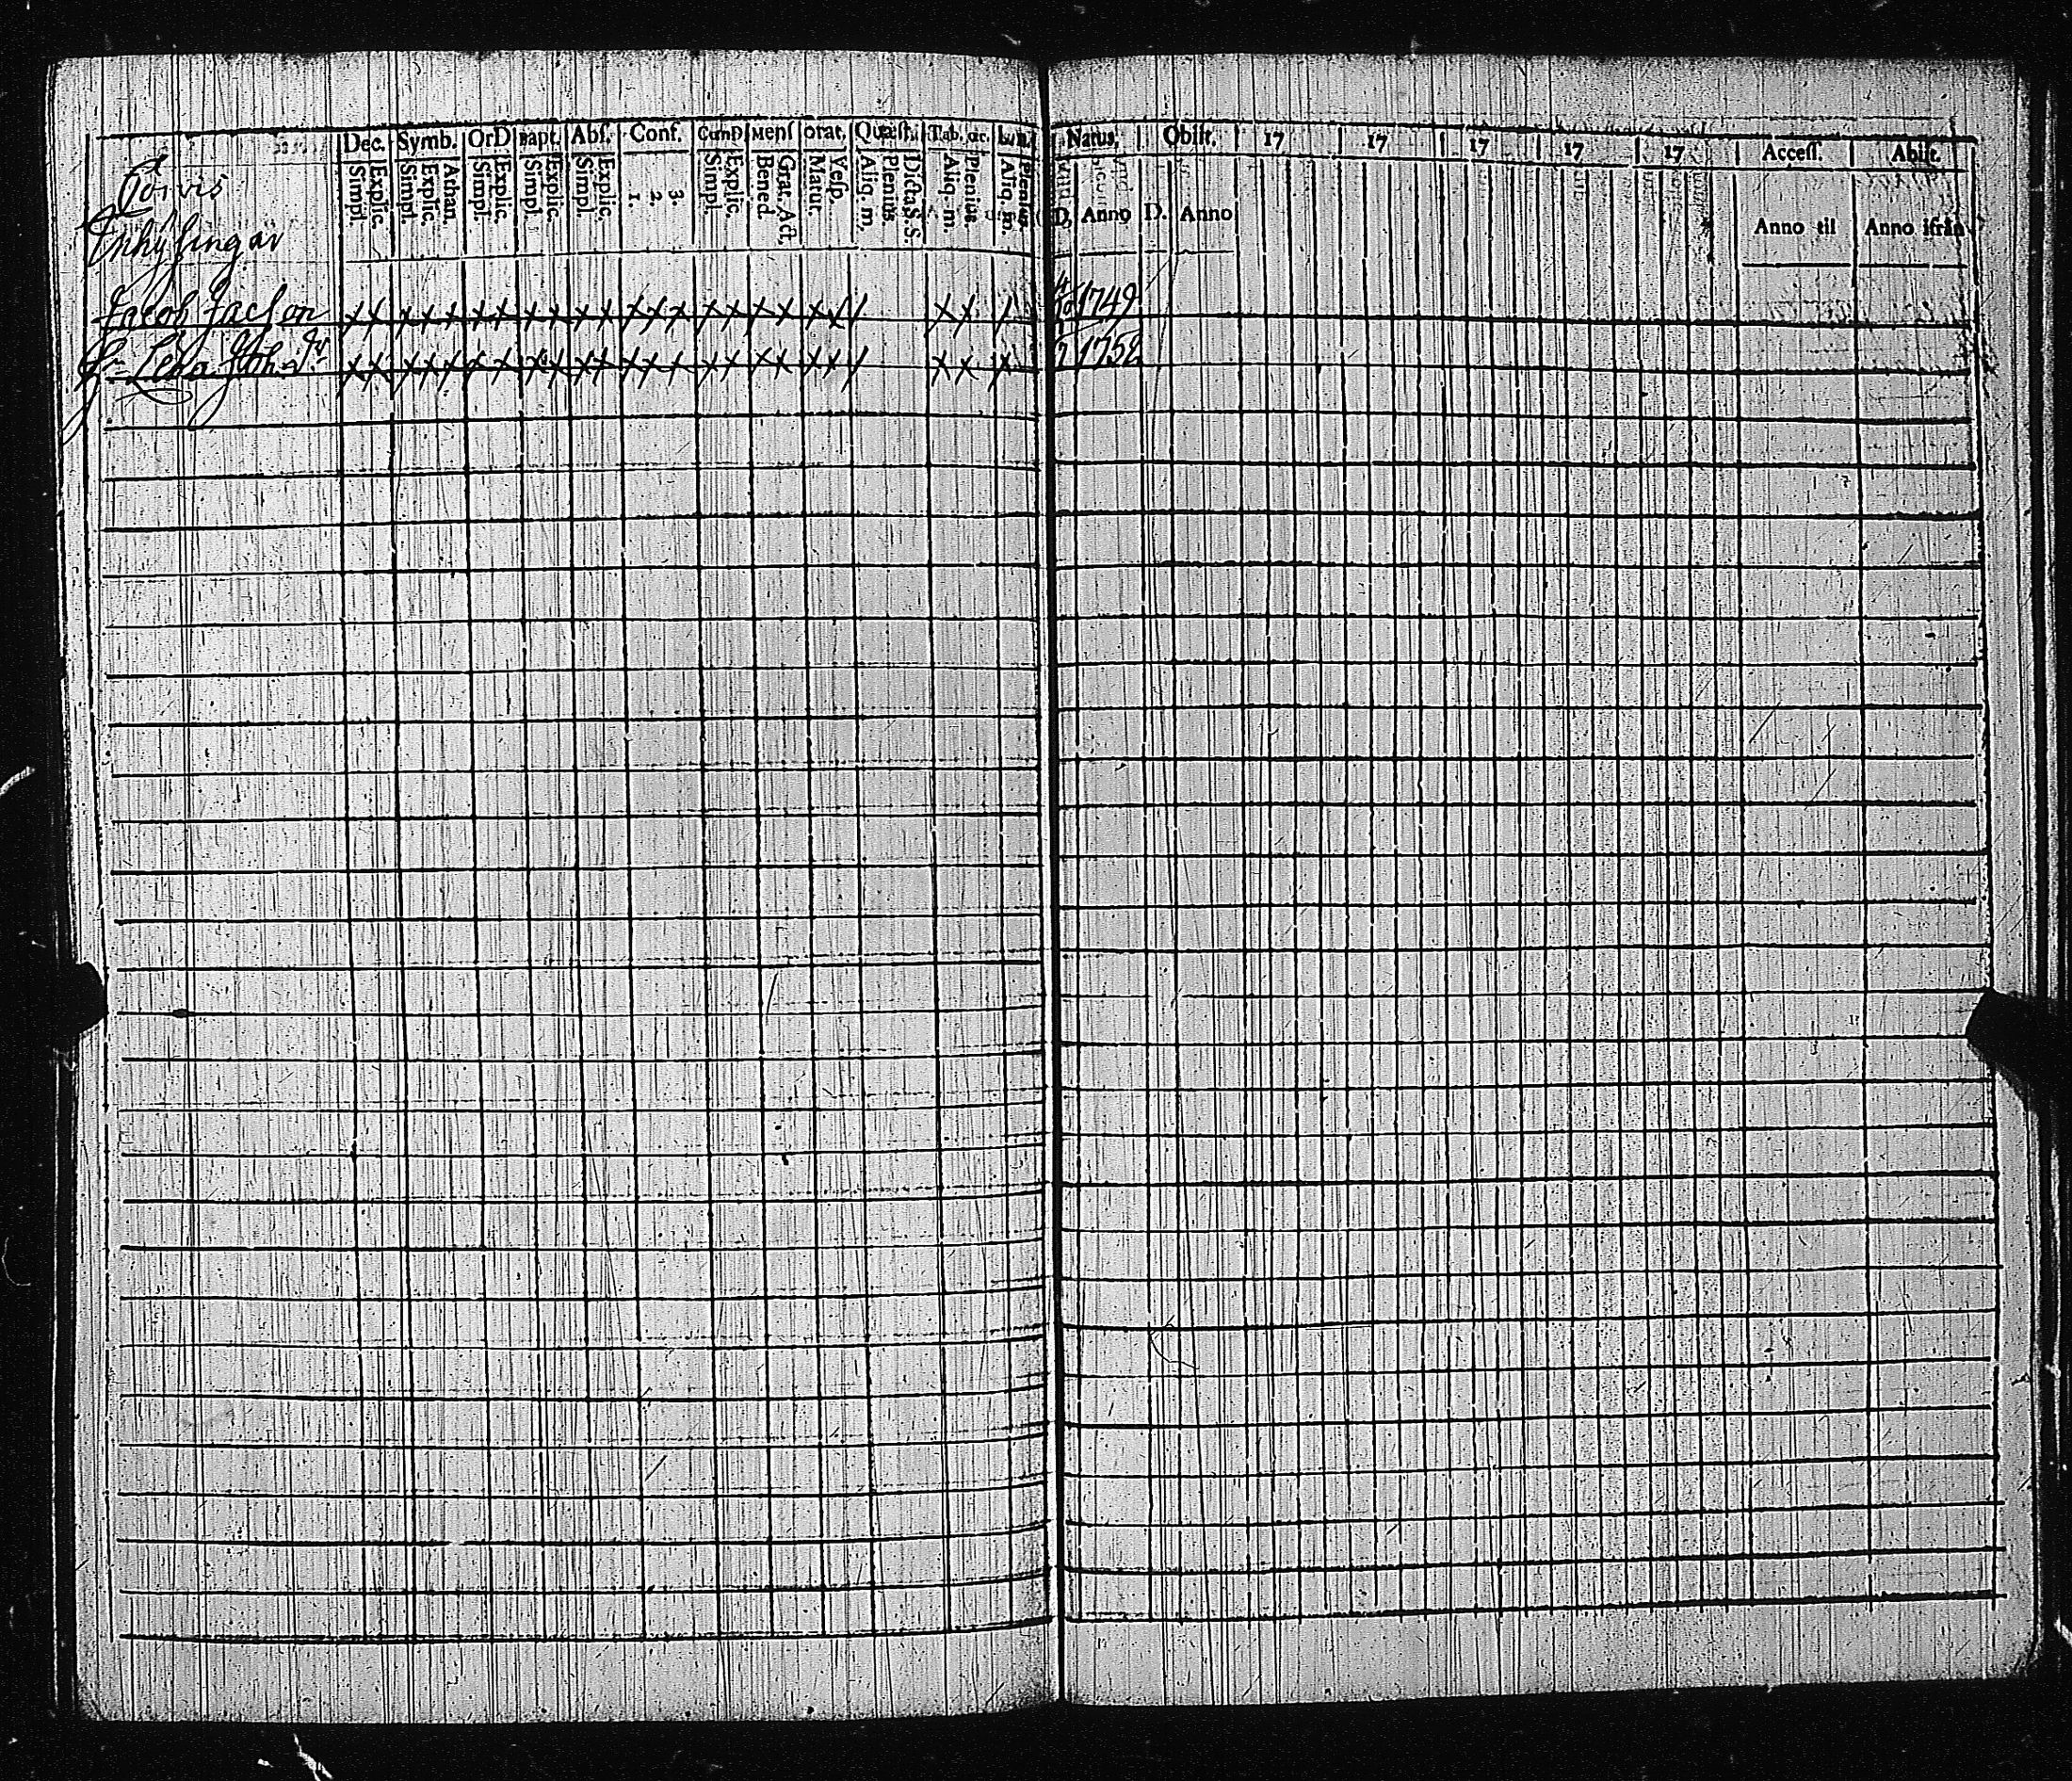 Dec. Symb. OrD Bapt. Abſ. Conf. CœnD Menſ orat. Quæſt. Tab. œc. Natus, Obiit. 17 17 17 17 17 Acceſſ. Abiit.
Simpl. Explic. Simpl. Explic. Athan. Simpl. Explic. Simpl. Explic. Simpl. Explic. 1. 2. 3. Simpl. Explic. Bened. Grat. Act. Matut. Veſp. Aliq. m. Plenius. Dicta S. S. Aliq. m. Plenius. Aliq. m. Plenius. D. Anno D. Anno Anno til Anno ifrån
Toivis
Inhyſingar
Jacob Jacſon 1749
Lena Joh. dr 1752